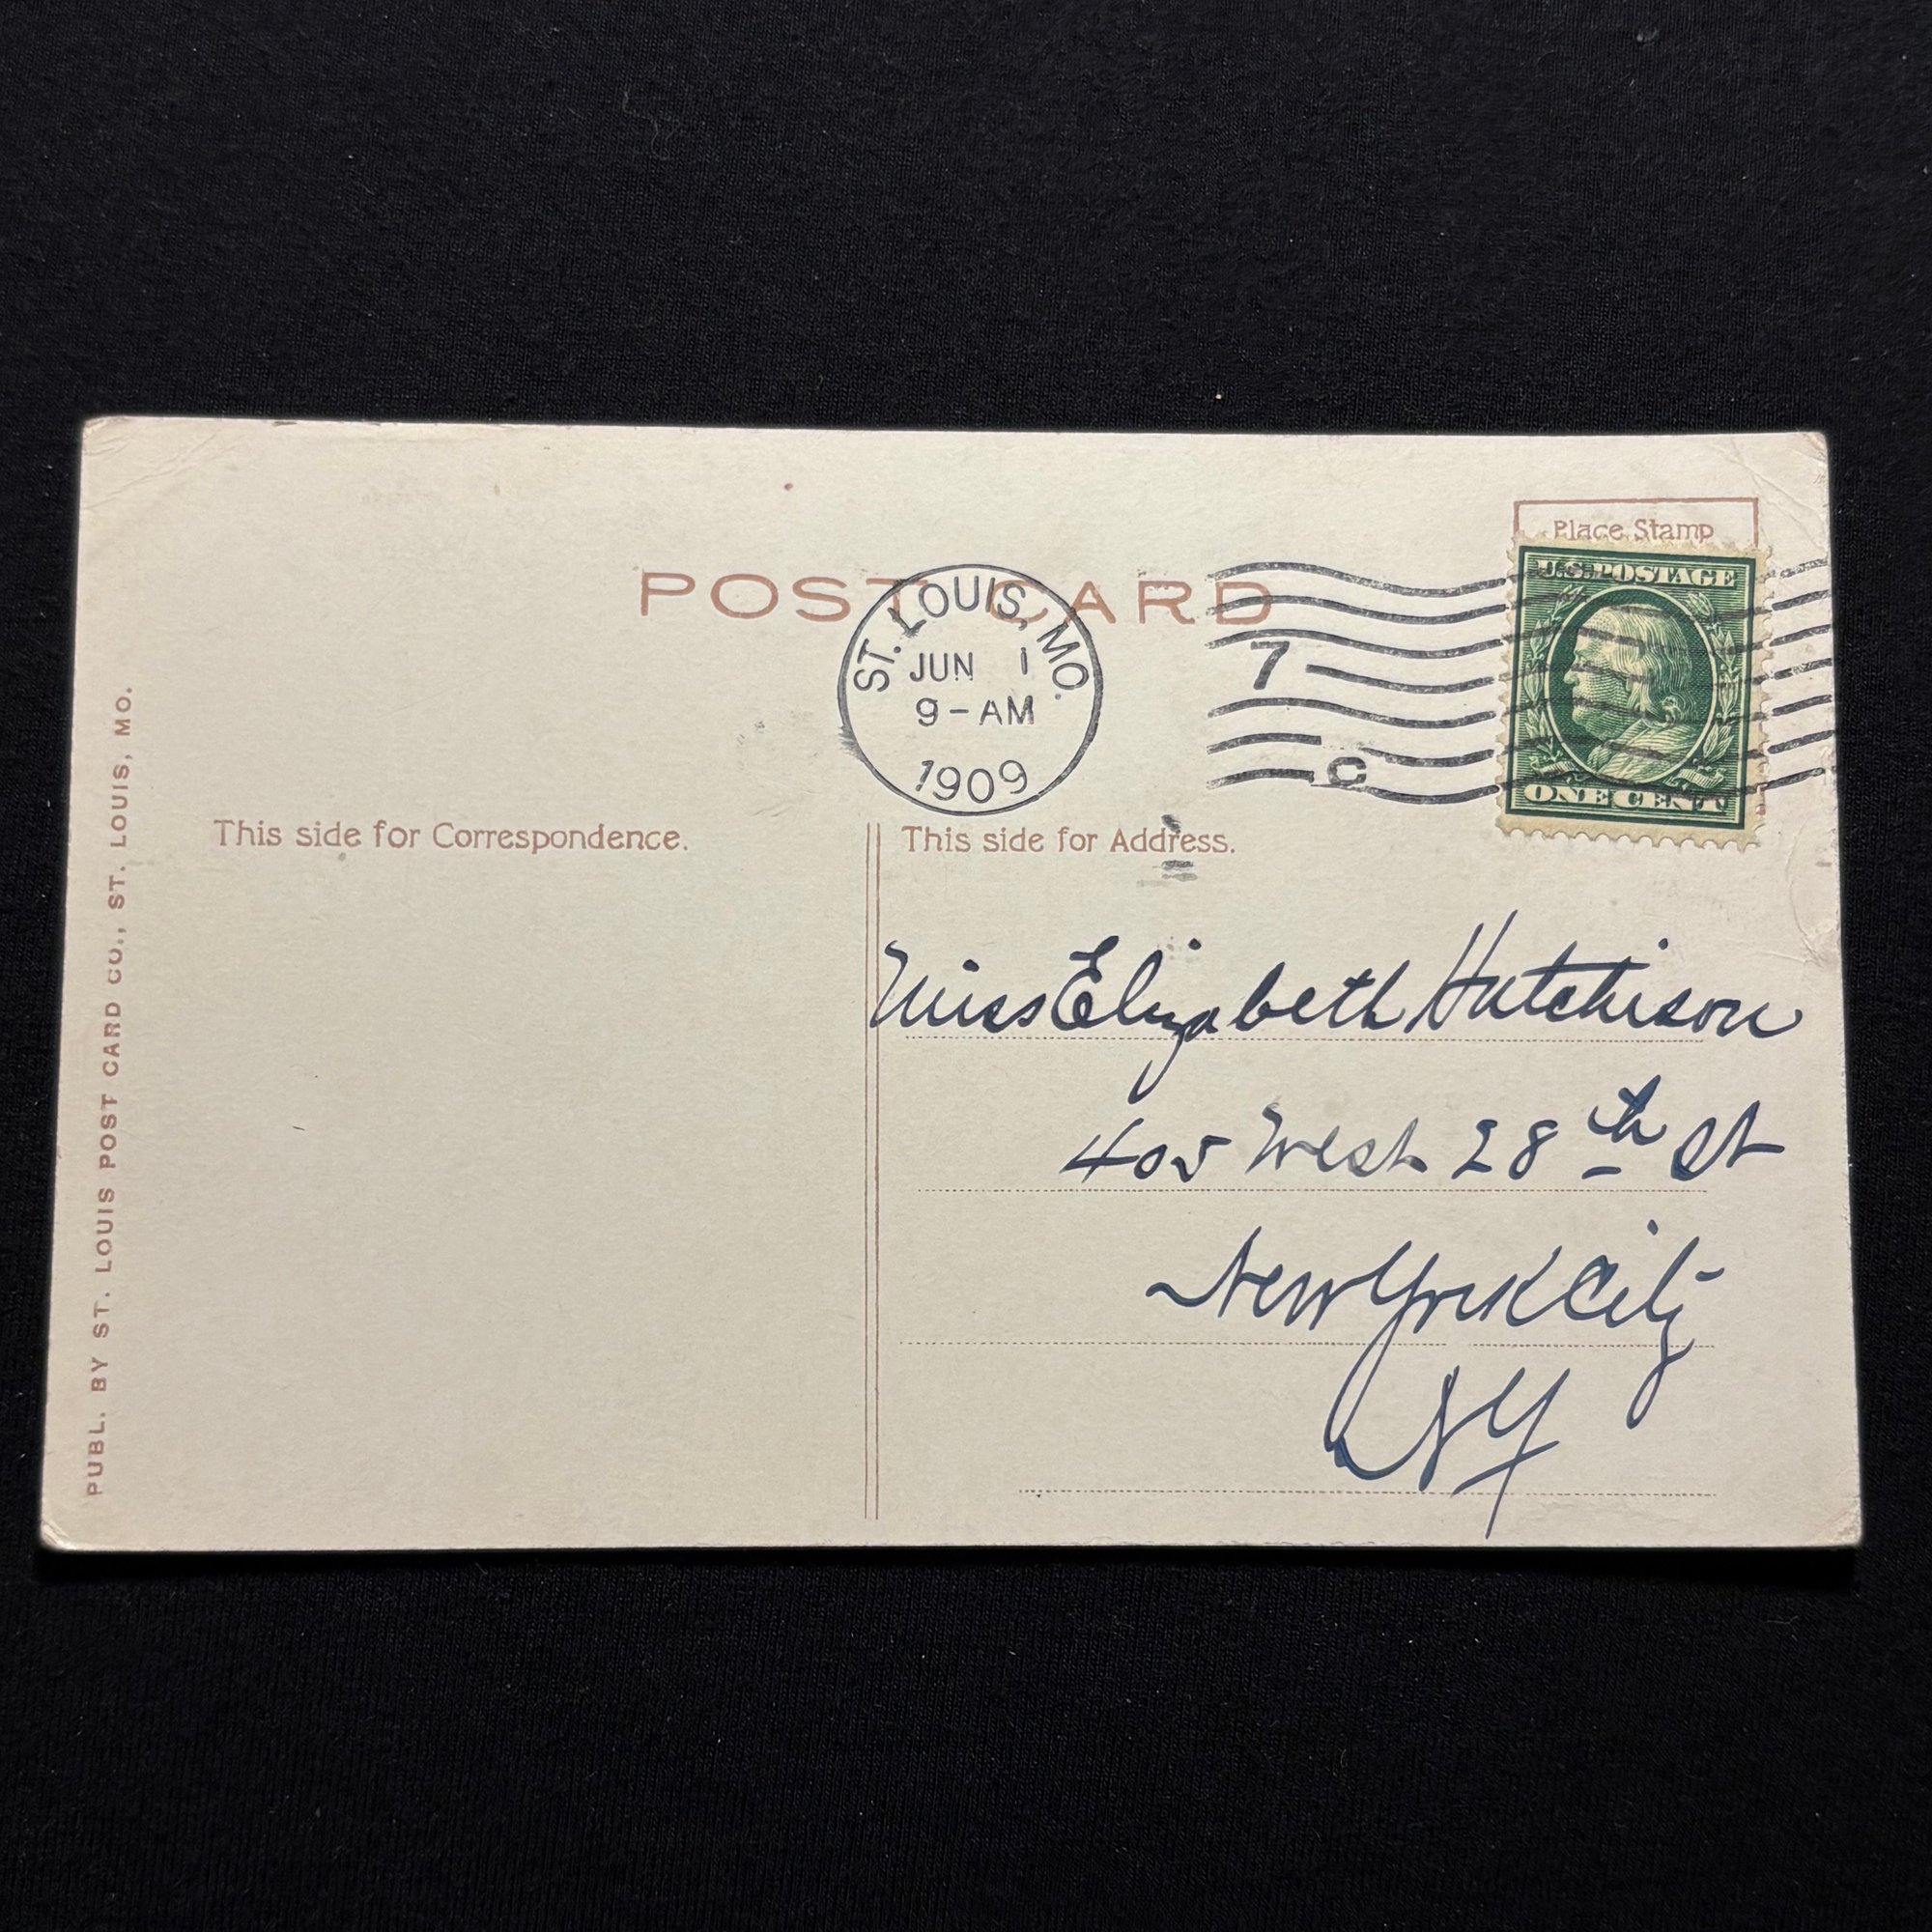 Place Stamp
POST CARD
U.S. POSTAGE
ONE CENT
ST. LOUIS, MO.
JUN 1
9-AM
1909
7
C
This side for Correspondence.
This side for Address.
Miss Elizabeth Hutchison
405 West 28th St
New York City
NY
PUBL. BY ST. LOUIS POST CARD CO., ST. LOUIS, MO.